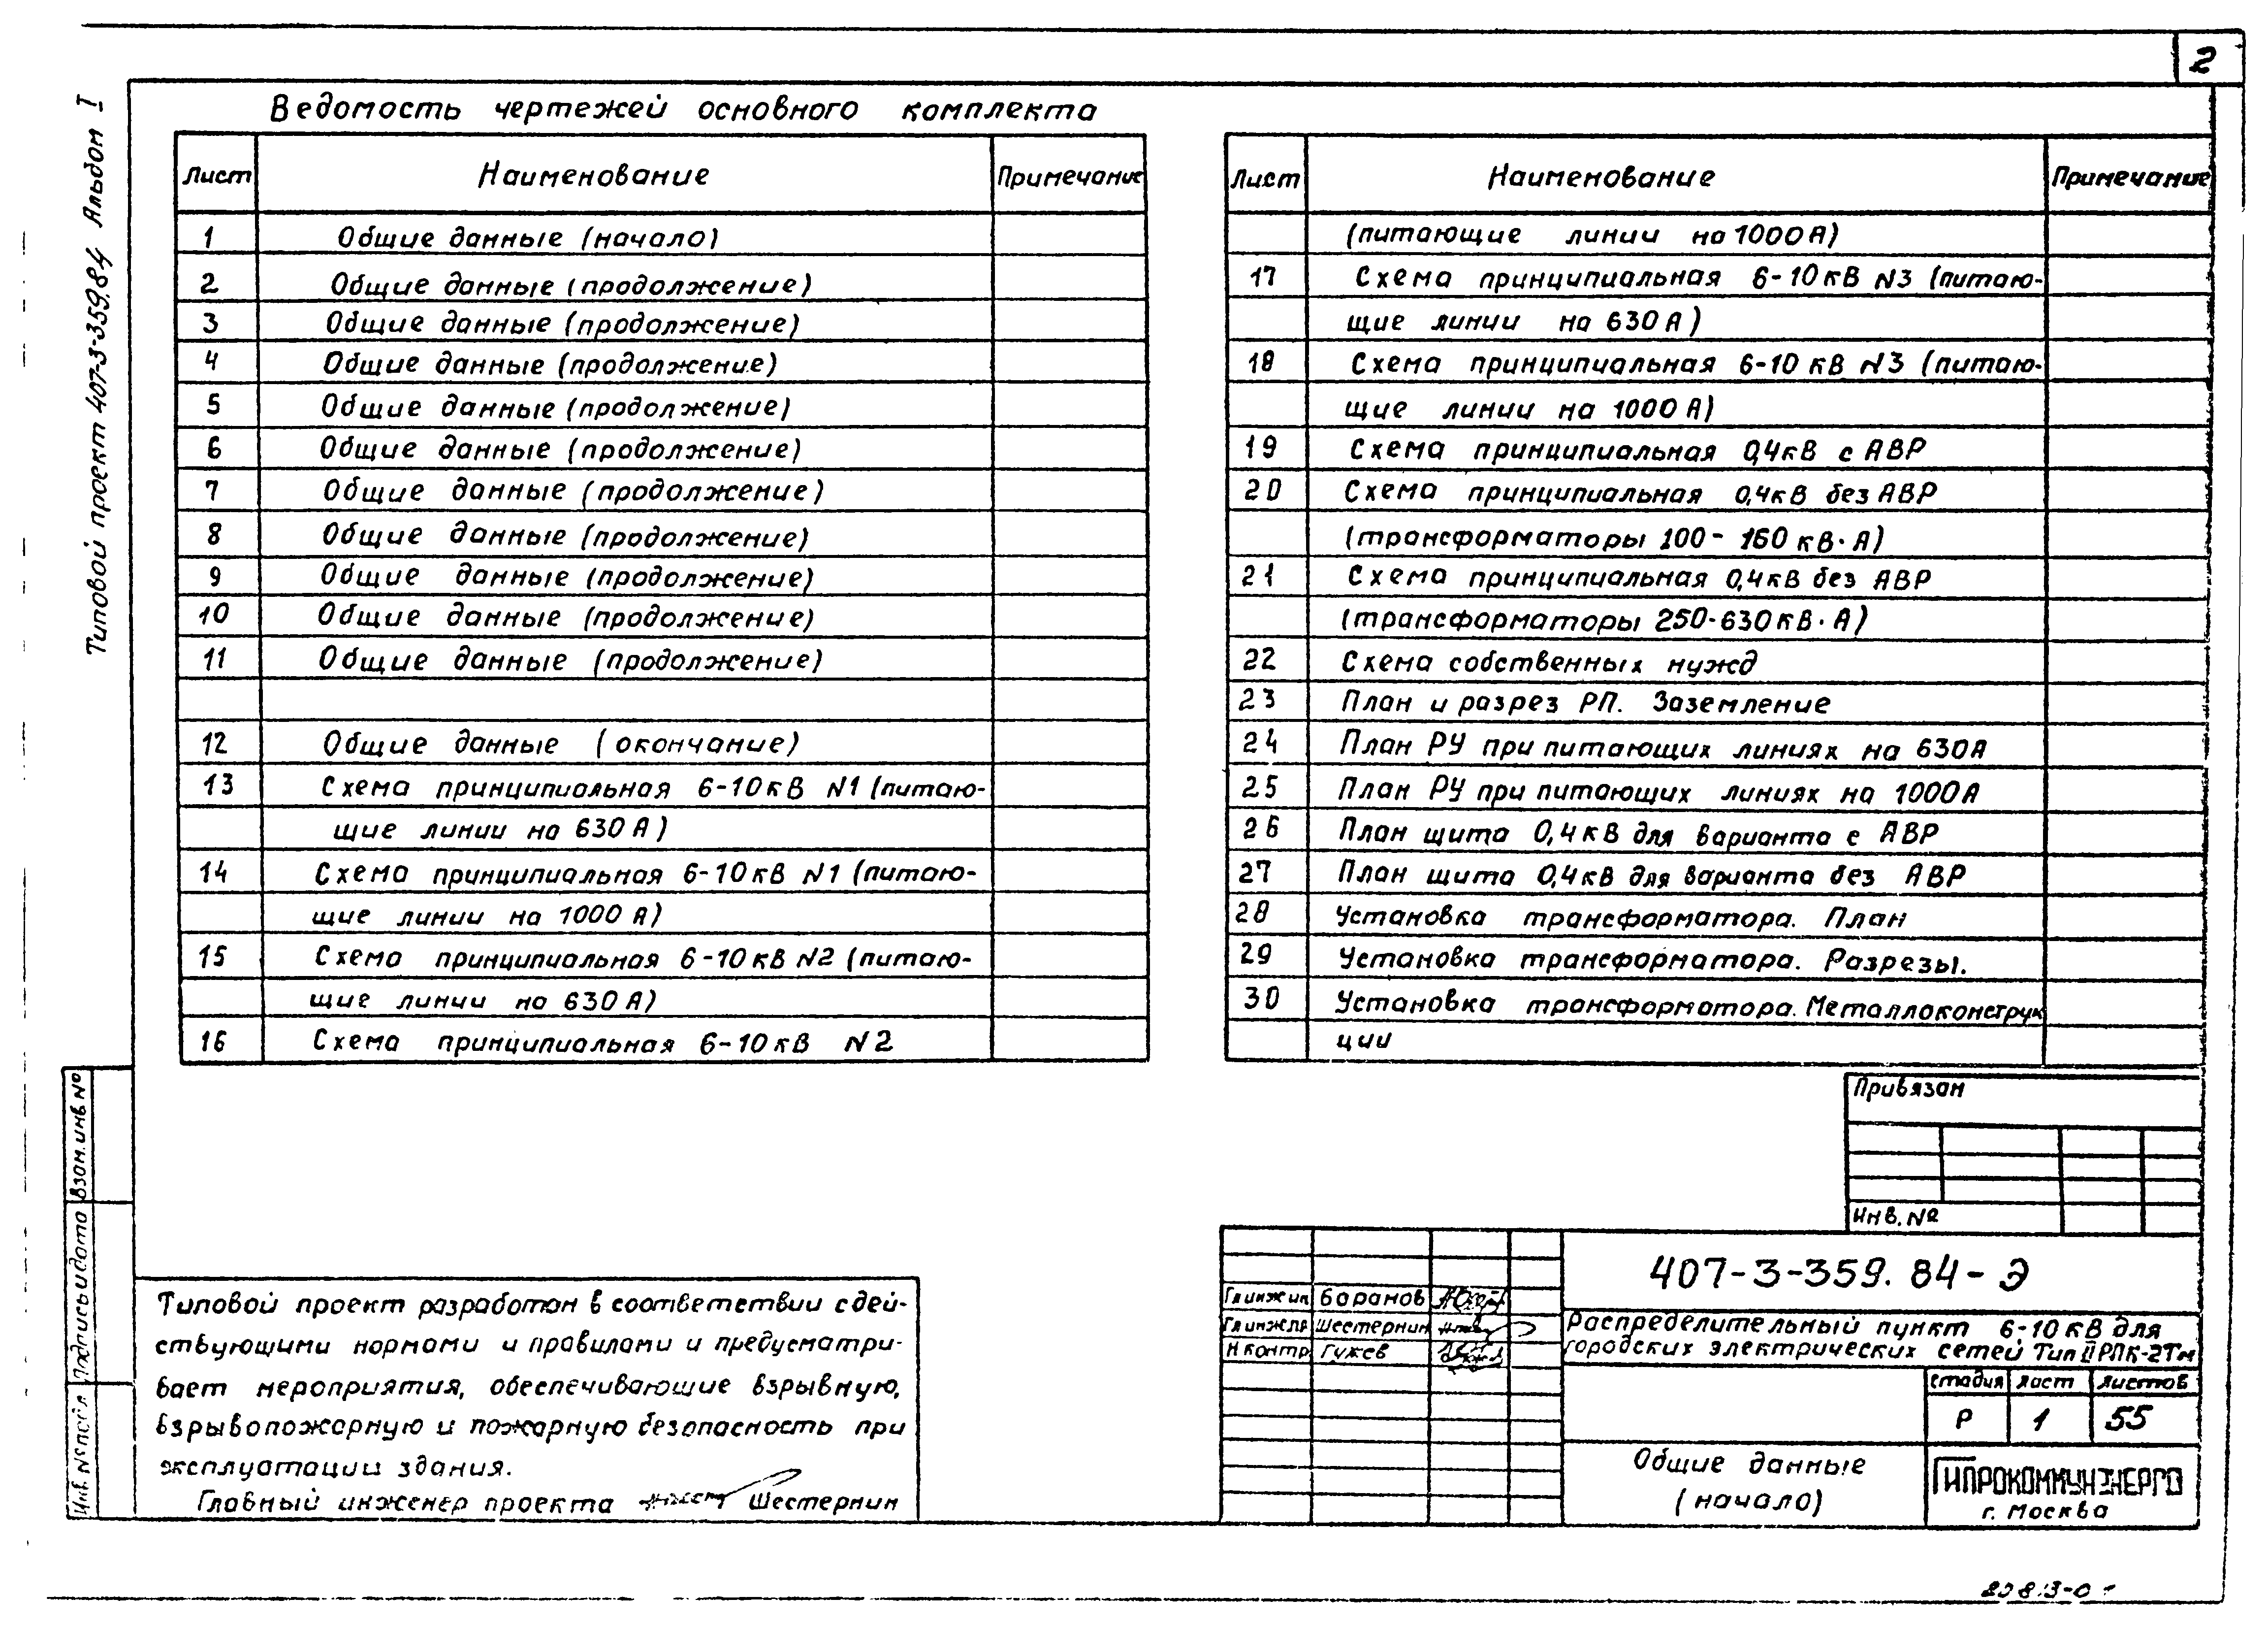 2
Типовой проект 407-3-359.84 Альбом I
Ведомость чертежей основного комплекта
Лист Наименование Примечание
1 Общие данные (начало)
2 Общие данные (продолжение)
3 Общие данные (продолжение)
4 Общие данные (продолжение)
5 Общие данные (продолжение)
6 Общие данные (продолжение)
7 Общие данные (продолжение)
8 Общие данные (продолжение)
9 Общие данные (продолжение)
10 Общие данные (продолжение)
11 Общие данные (продолжение)
12 Общие данные (окончание)
13 Схема принципиальная 6-10кВ N1 (питаю-
щие линии на 630 А)
14 Схема принципиальная 6-10кВ N1 (питаю-
щие линии на 1000 А)
15 Схема принципиальная 6-10кВ N2 (питаю-
щие линии на 630 А)
16 Схема принципиальная 6-10кВ N2
Лист Наименование Примечание
(питающие линии на 1000 А)
17 Схема принципиальная 6-10кВ N3 (питаю-
щие линии на 630 А)
18 Схема принципиальная 6-10 кВ N3 (питаю-
щие линии на 1000 А)
19 Схема принципиальная 0,4кВ с АВР
20 Схема принципиальная 0,4кВ без АВР
(трансформаторы 100-160 кВ·А)
21 Схема принципиальная 0,4кВ без АВР
(трансформаторы 250-630кВ·А)
22 Схема собственных нужд
23 План и разрез РП. Заземление
24 План РУ при питающих линиях на 630А
25 План РУ при питающих линиях на 1000А
26 План щита 0,4кВ для варианта с АВР
27 План щита 0,4кВ для варианта без АВР
28 Установка трансформатора. План
29 Установка трансформатора. Разрезы.
30 Установка трансформатора. Металлоконструк
ции
Привязан
Инв. №
Взам. инв №
Подпись и дата
Инв. № подл
Типовой проект разработан в соответствии с дей-
ствующими нормами и правилами и предусматри-
вает мероприятия, обеспечивающие взрывную,
взрывопожарную и пожарную безопасность при
эксплуатации здания.
Главный инженер проекта Шестернин
Гл инж ин Баранов
Гл инж пр Шестернин
Н контр Гужев
407-3-359.84-Э
Распределительный пункт 6-10 кВ для
городских электрических сетей Тип II РПК-2Тм
стадия лист листов
Р 1 55
Общие данные
(начало)
ГИПРОКОММУНЭНЕРГО
г. Москва